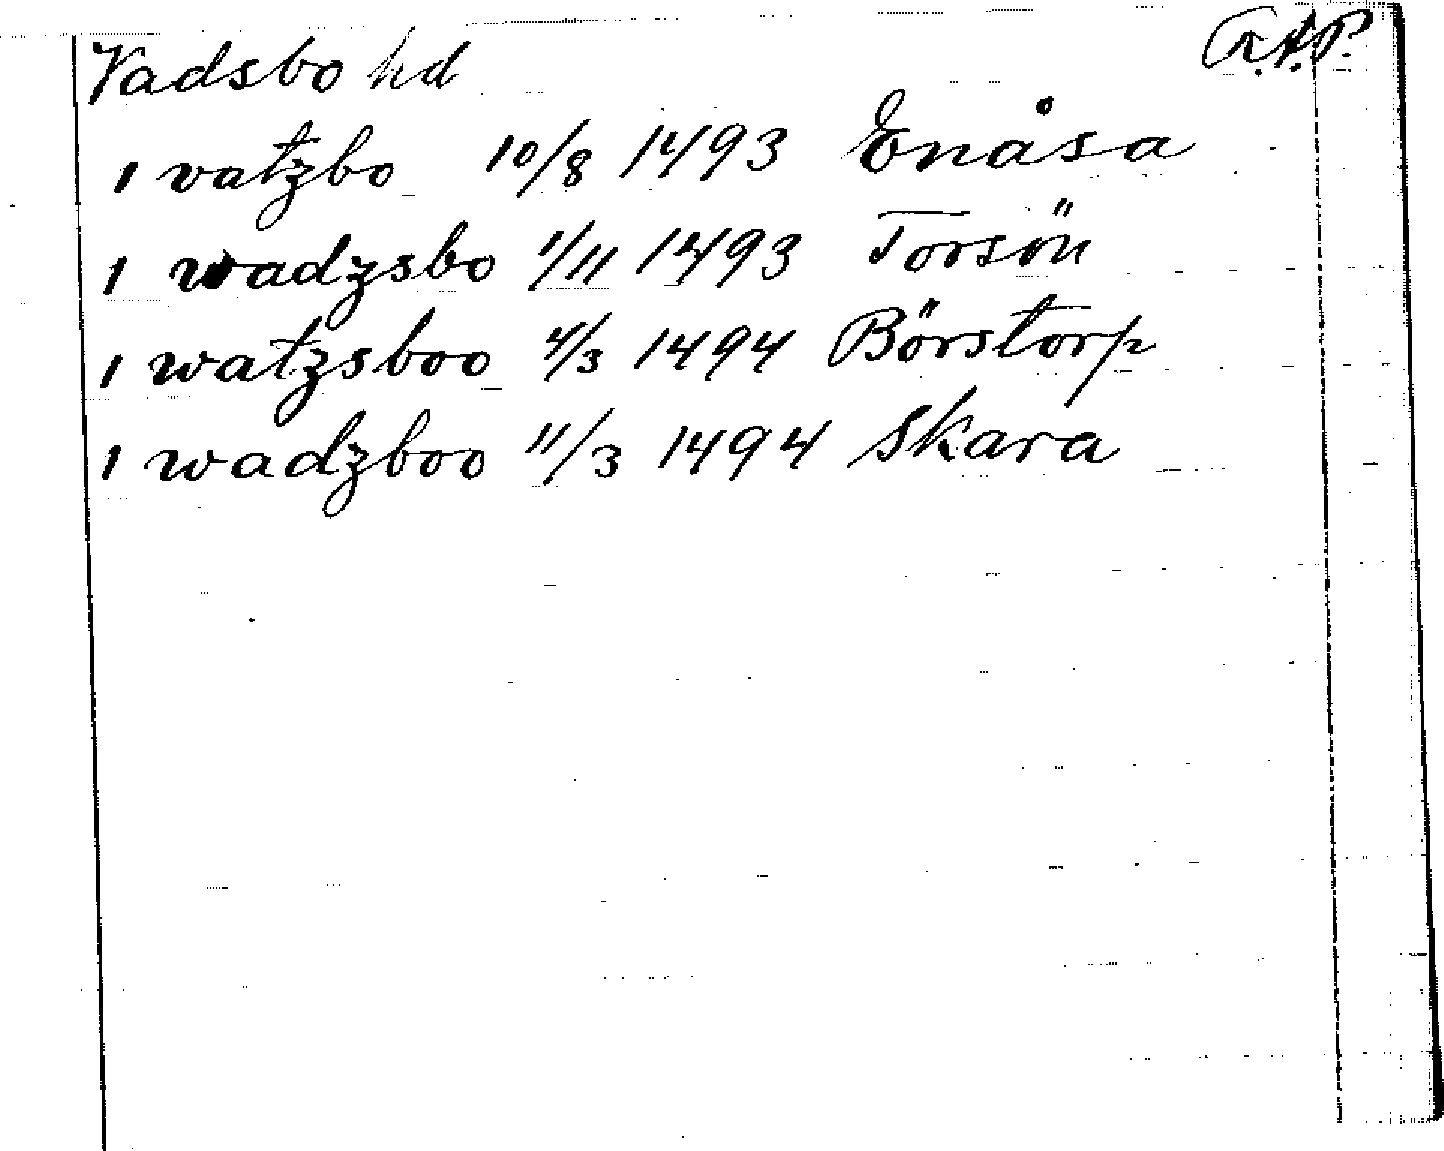 Vadsbo hd R.A.P.
1 vatzbo 10/8 1493 Enåsa
1 wadzsbo 1/11 1493 Torsön
1 watzsboo 4/3 1494 Börstorp
1 wadzboo 11/3 1494 Skara